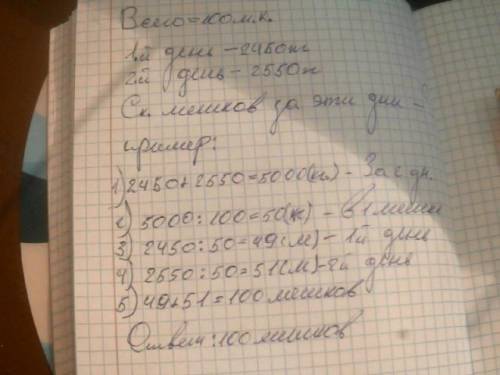 Всего = 100 м. к.
1й день - 2450 кг
2й день - 2550 кг
Ск. мешков за эти дни -
пример:
1) 2450+2550=5000(кг) - За 2 дн.
2) 5000:100=50(кг) - в 1 мешке
3) 2450:50=49(м) - 1й день
4) 2550:50=51(м) - 2й день
5) 49+51=100 мешков
Ответ: 100 мешков